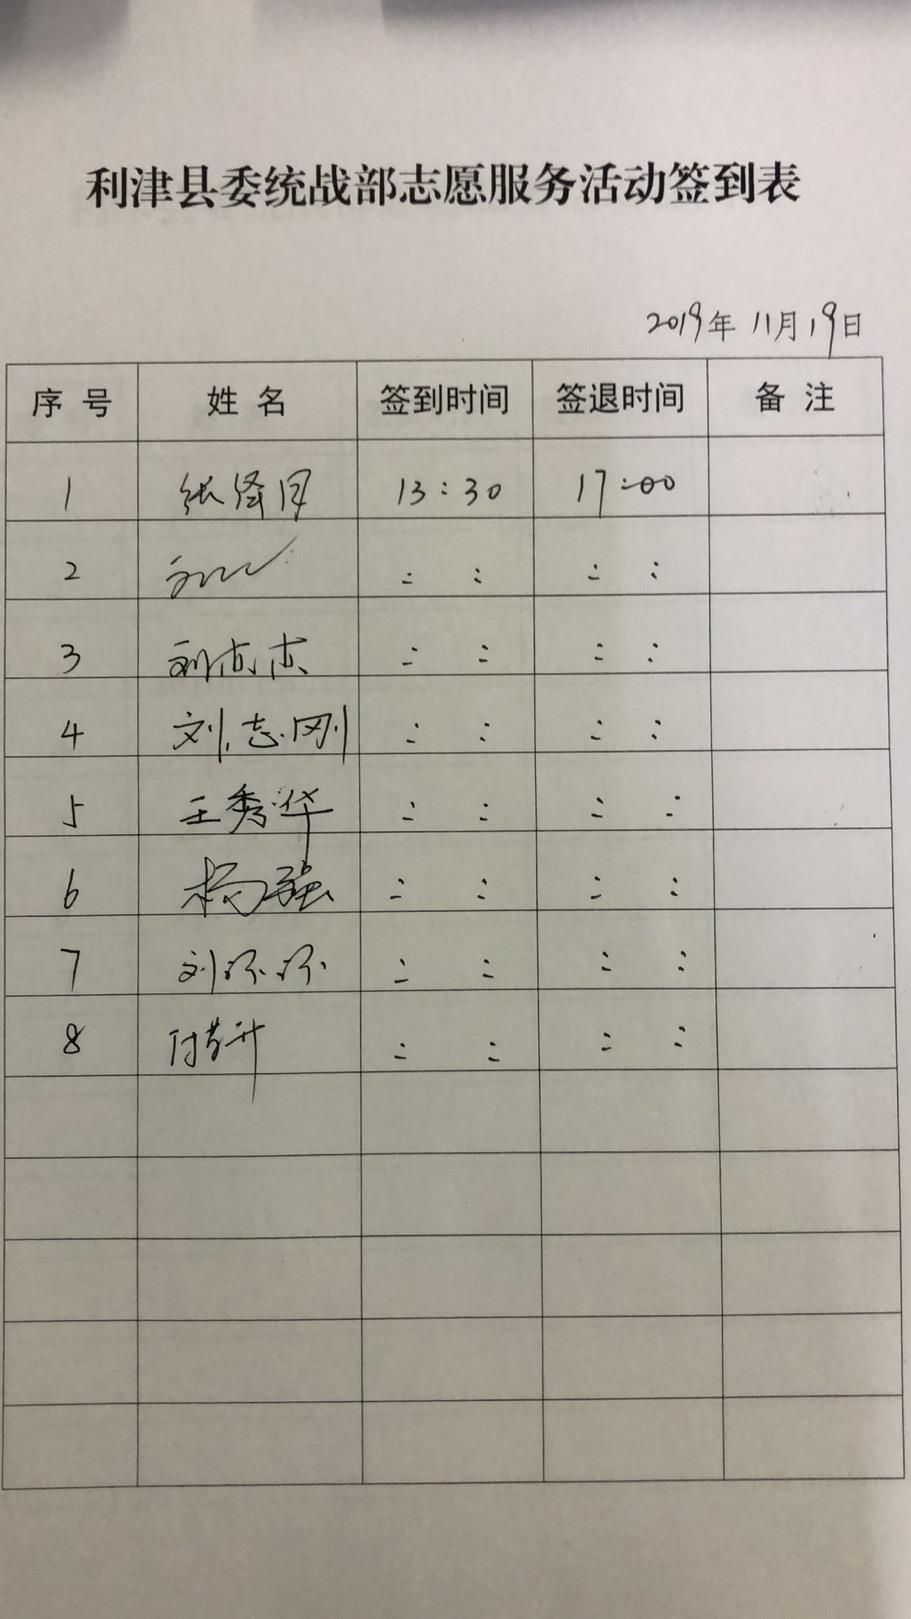 利津县委统战部志愿服务活动签到表
2019年 11月19日
序号 姓名 签到时间 签退时间 备注
1 张泽月 13:30 17:00
2 : : : :
3 刘 : : : :
4 刘志刚 : : : :
5 王秀华 : : : :
6 杨强 : : : :
7 刘环环 : : : :
8 付 : : : :